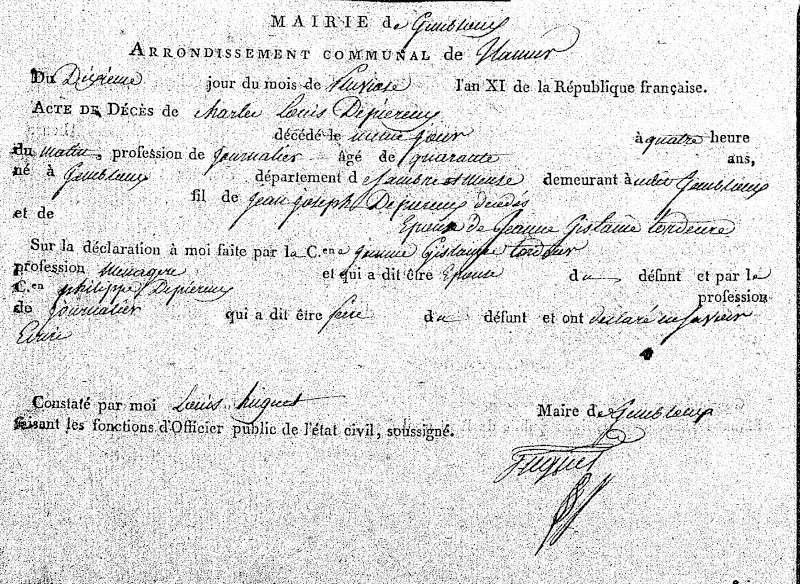 MAIRIE de Gembloux
ARRONDISSEMENT COMMUNAL de Namur
Du Dixième jour du mois de Pluviose l'an XI de la République française.
ACTE DE DÉCÈS de Charles Louis Depiereux
décédé le même jour à quatre heure
du matin, profession de Journalier âgé de quarante ans,
né à Gembloux département d Sambre et Meuse demeurant à audit Gembloux
fil de Jean Joseph Depiereux decedés
et de Epoux de Jeanne Gislaine tordeure
Sur la déclaration à moi faite par la C.en e Jeanne Gislaine tordeur
profession Menagere et qui a dit être Epouse du défunt et par le
C.en philippe Depiereux profession
de Journalier qui a dit être frere du défunt et ont declaré ne savoir
Ecrire
Constaté par moi Louis huguet Maire de Gembloux
faisant les fonctions d'Officier public de l'état civil, soussigné.
Huguet